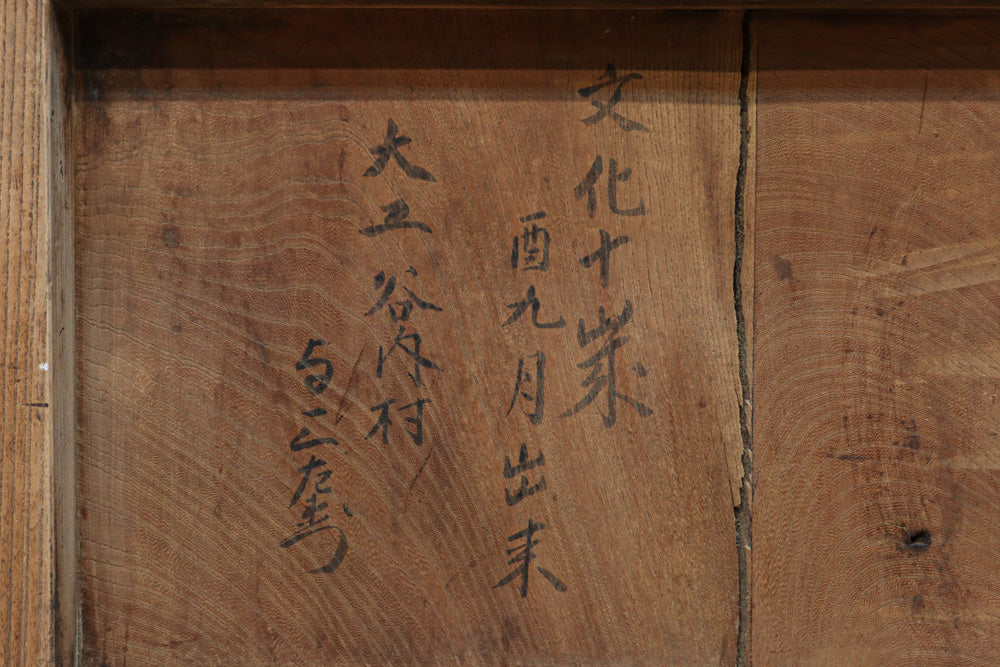 文化十歳
酉九月出来
大工谷内村
与三左衛門